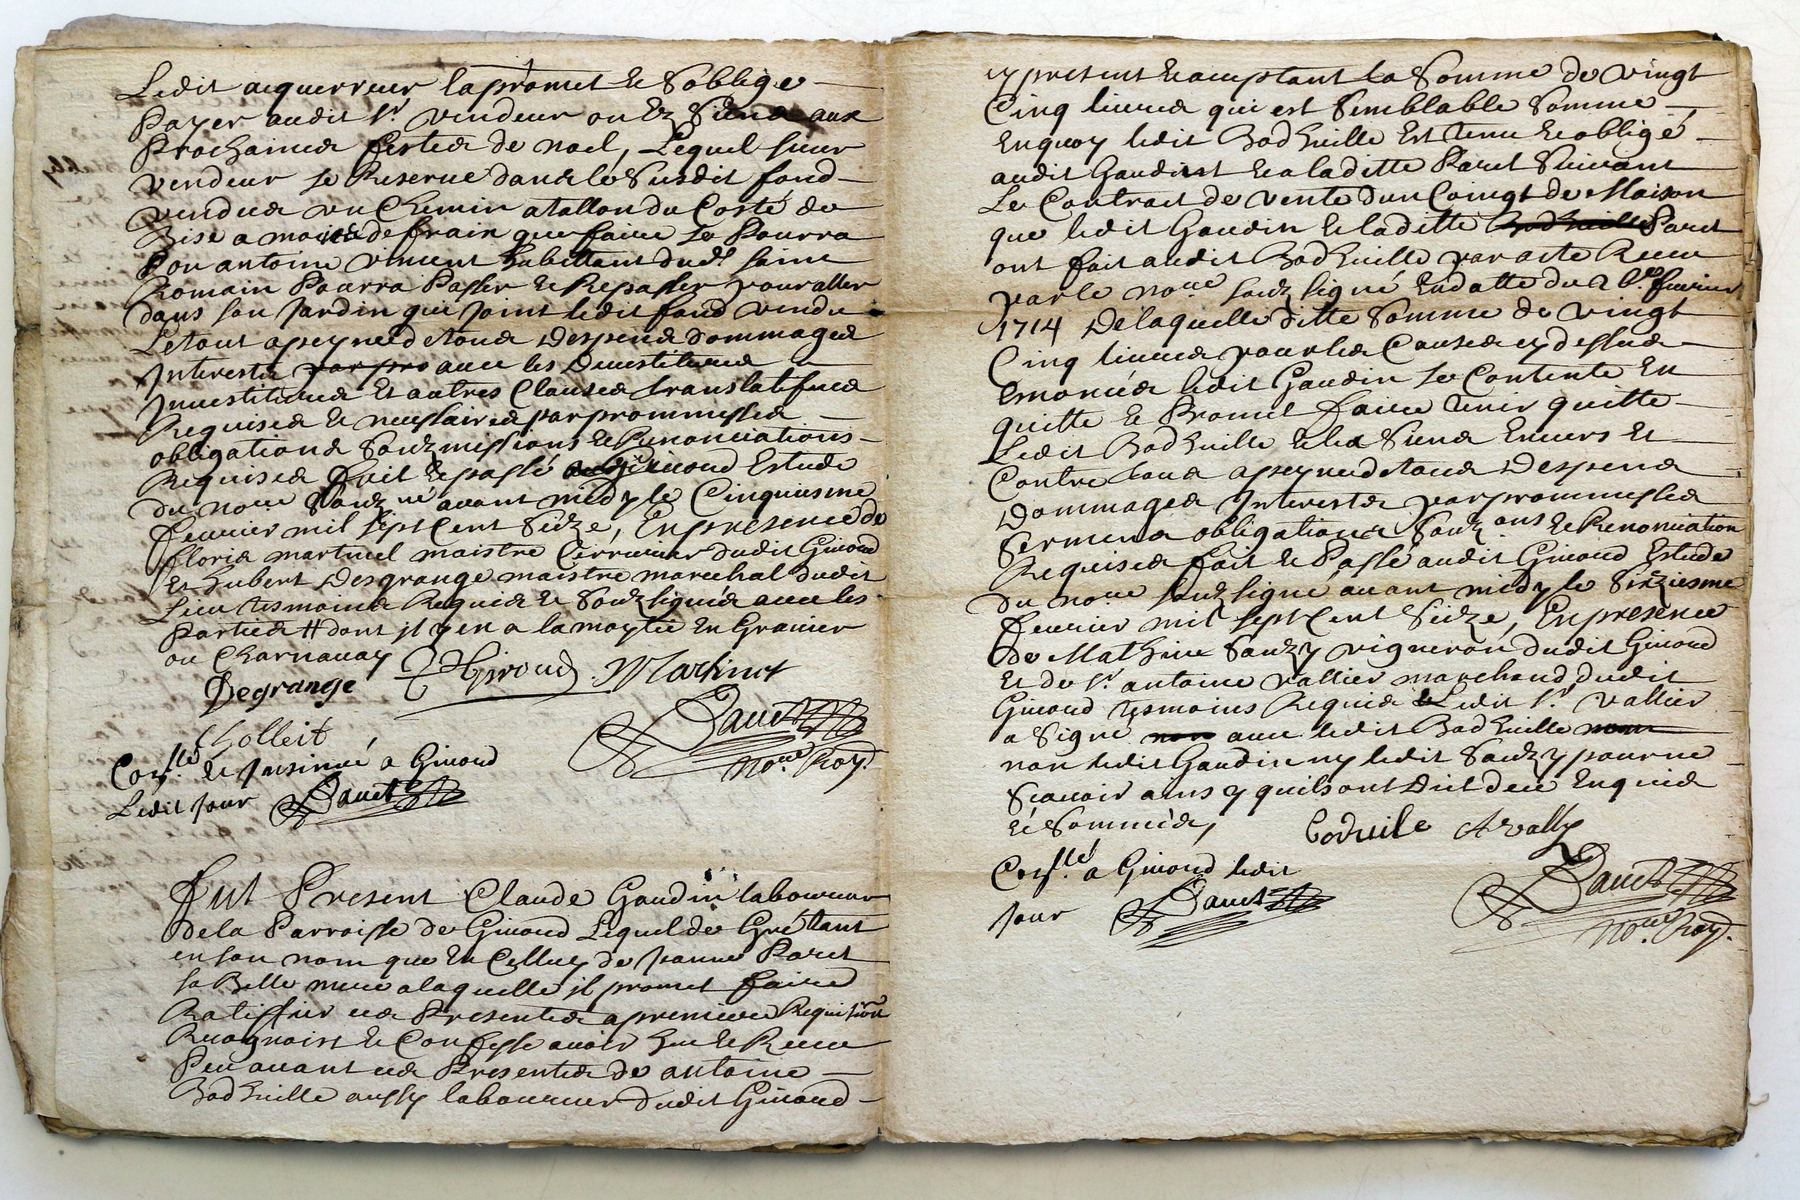 Ledit acquerreur la promet & soblige
Payer audit Sr. vendeur ou ez siens aux
Prochaines festes de noel, Lequel sieur
vendeur se Reserve dans le susdit fond
vendus un Chemin a tallon du Costé de
Bise a moitié de frain que faire se Pourra
Pou antoine vincent habittant dud. saint
Romain Pourra Passer & Repasser pour aller
dans son Jardin qui joint ledit fond vendu
Letout a peyne de tous despens dommages
Interests par pro avec les devestitures
Investitures Et autres Clauses translatifves
Requises & necessaires par prommesses
obligations Soubzmissions & Renonciations
Requises fait & passé a Givord Estude
du nore. Soubzne avant midy le Cinquiesme
fevrier mil sept Cent Seize, En presence de
floris martinet maistre Cerrurier dudit Givord
Et hubert Desgrange maistre marechal dudit
Lieu tesmoins Requis & Soubzsignés avec les
Parties # dont il y en a la moytié En Gravier
ou Charnavay
Degrange Giroud Martinet
Cholleit
Dauet
Nore. Roy.
Conslé & Insinué a Givord
Ledit Jour Dauet
Fut Present Claude Gaudin laboureur
de la Parroisse de Givord Lequel de Gré tant
en son nom que En Celluy de Jeanne Paret
sa Belle mere a laquelle il promet faire
Ratiffier ces Presentes a premiere Requision
Recognoist & Confesse avoir heu & Receu
Peu avant ces Presentes de antoine
Bodhuille aussy laboureur dudit Givord
cy present & acceptant la Somme de vingt
Cinq livres qui est Semblable Somme
En quoy ledit Bodhuille Est tenu & obligé
audit Gaudin & a laditte Paret Suivant
Le Contract de vente dun Coingt de Maison
que ledit Gaudin & laditte Bodhuille Paret
ont fait audit Bodhuille par acte Receu
par le nore. soubzsigné En datte du fevrier
1714 De laquelle ditte Somme de vingt
Cinq livres pour les Causes cy dessus
Enoncées ledit Gaudin se Contente En
quitte & Promet faire tenir quitte
Ledit Bodhuille & les Siens Envers Et
Contre tous a peyne de tous Despens
Dommages Interests par prommesses
Serments obligations Soubzons & Renonciation
Requises fait & Passé audit Givord Estude
du nore. soubzsigné avant midy le Sixziesme
fevrier mil sept Cent Seize, En presence
de Mathieu Sauzy vigneron dudit Givord
Et de Sr. antoine vallier marchand dudit
Givord tesmoins Requis & Ledit Sr. vallier
a Signé non avec ledit Bodhuille non
non ledit Gaudin ny ledit Sauzy pour ne
Scavoir ainsy quils ont Dit de ce Enquis
& Sommés, Boduile A vallier
Dauet
Nore. Roy.
Conslé a Givord ledit
Jour Dauet